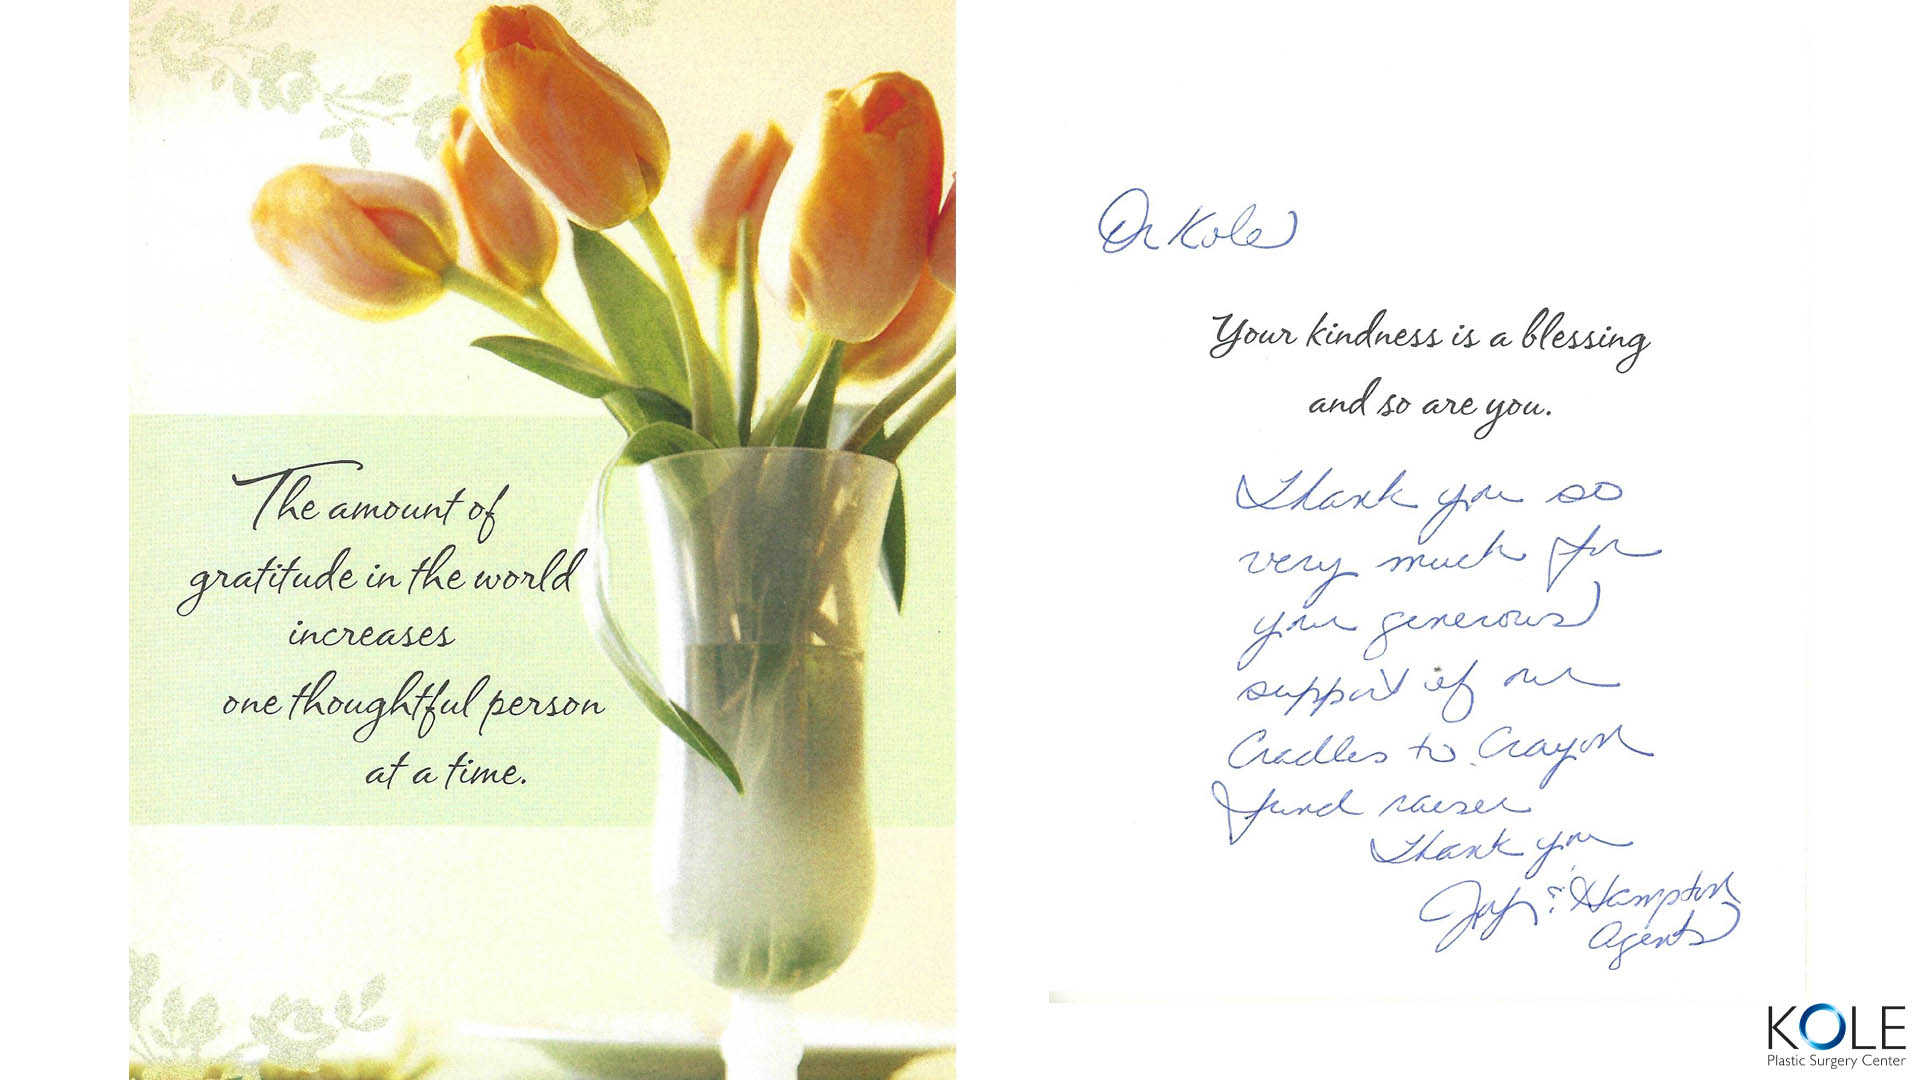 The amount of
gratitude in the world
increases
one thoughtful person
at a time.
Dr Kole
Your kindness is a blessing
and so are you.
Thank you so
very much for
your generous
support of our
Cradles to Crayon
fund raiser
Thank you
& Hampton
Agents
KOLE
Plastic Surgery Center